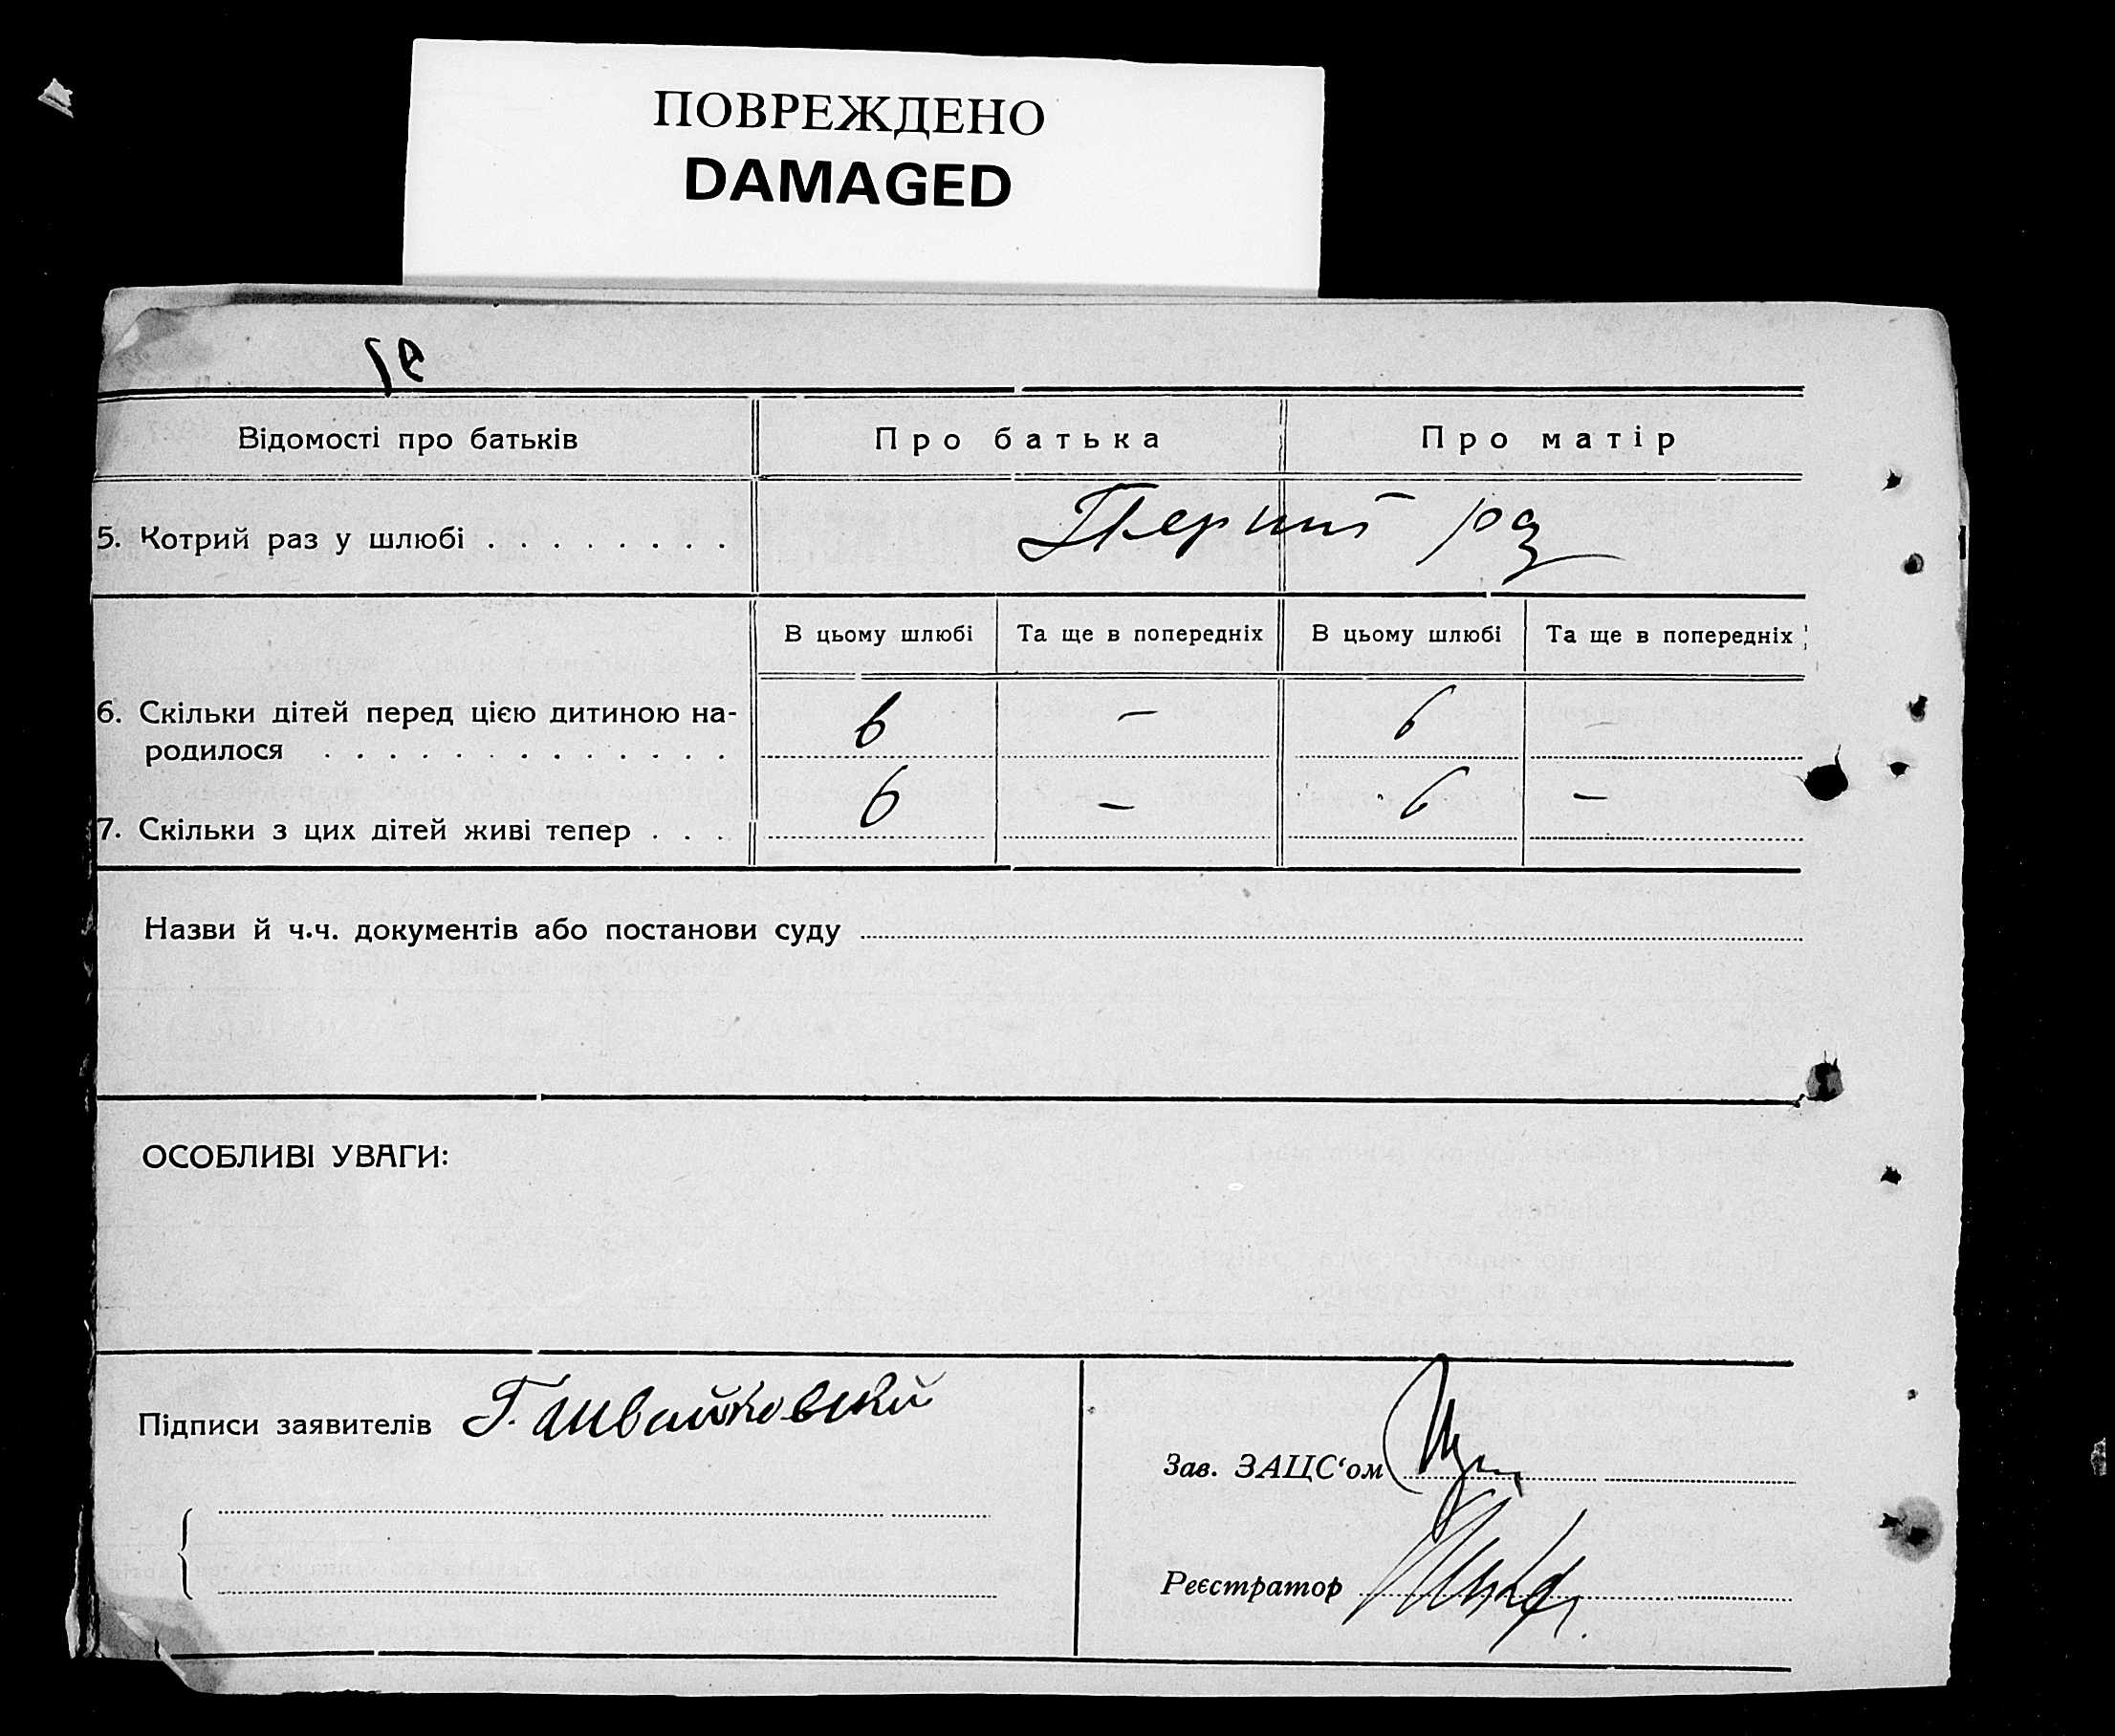 ПОВРЕЖДЕНО
DAMAGED
Відомості про батьків Про батька Про матір
5. Котрий раз у шлюбі . . . . . . . . Перший раз
В цьому шлюбі Та ще в попередніх В цьому шлюбі Та ще в попередніх
6. Скільки дітей перед цією дитиною на-
родилося . . . . . . . . . . . . . 6 — 6 —
7. Скільки з цих дітей живі тепер . . . 6 — 6 —
Назви й ч.ч. документів або постанови суду
ОСОБЛИВІ УВАГИ:
Підписи заявителів
Зав. ЗАЦС‘ом
Реєстратор